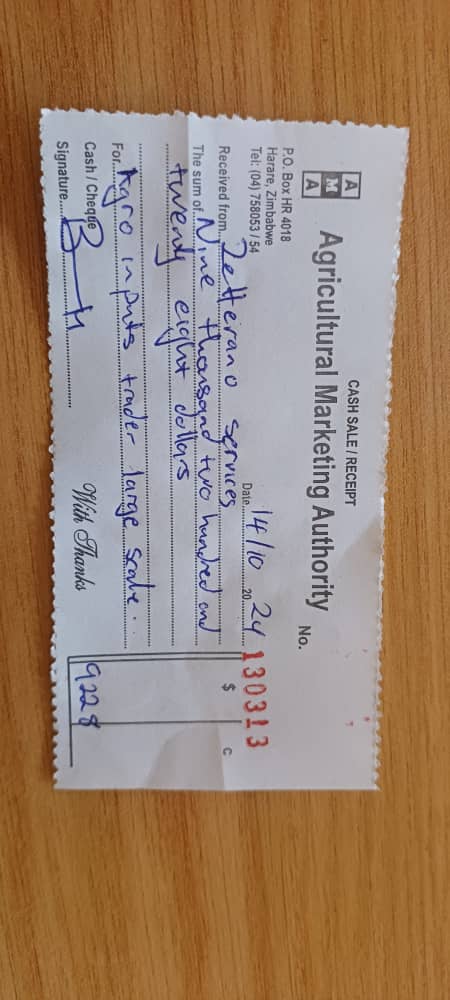 CASH SALE / RECEIPT
A
M
A A
Agricultural Marketing Authority
P.O. Box HR 4018
Harare, Zimbabwe
Tel: (04) 758053 / 54
No. 130313
Date 14/10 20 24
Received from Zetterano services
The sum of Nine thousand two hundred and
twenty eight dollars
$ c
For Agro inputs trader large scale.
Cash / Cheque
9228
Signature
With Thanks